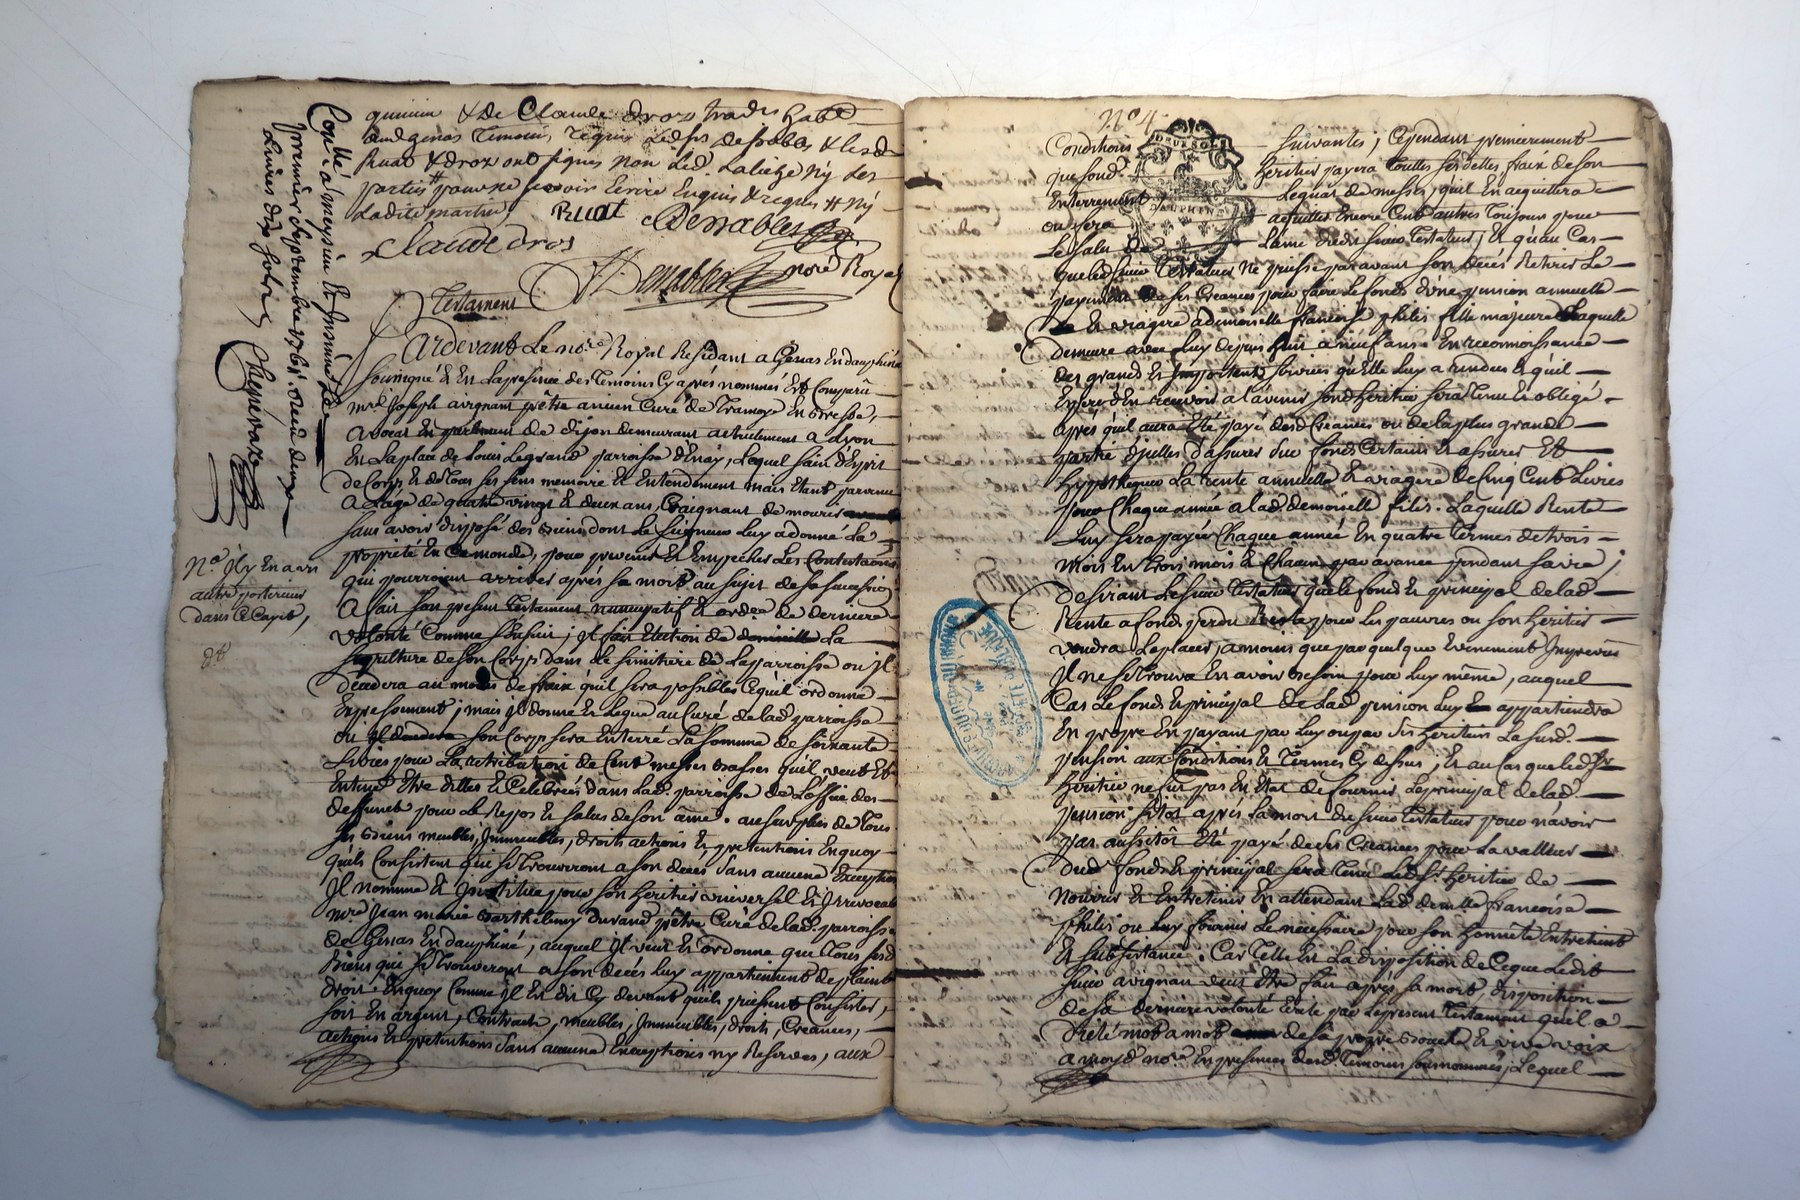 quinien & de Claude droz trad. hab.
aud. genas temoins requis led. Srs. desnables & lesd.
Ruat & droz ont signes non led. Laliege ny les
parties # pour ne scavoir Ecrire Enquis & requis # ny
Ladite martin
Ruat Desnables
Claude dros
Desnables nore. Royal
Testament
Pardevant Le nore. Royal Residant a Genas En dauphiné
soussigné & En La presence des temoins Cy aprés nommés Est Comparu
mre. Joseph avignant prêtre ancien Curé de Tramoye En Bresse,
avocat En parlement de dijon demeurant actuellement a Lyon
En La place de Louis Legrand parroisse d'Enay, Lequel sain d'Esprit
de Corps & de tous ses sens memoire & Entendement mais Etant parvenu
a L'age de quatre vingt & deux ans, Craignant de mourir
sans avoir disposé des biens dont Le seigneur Luy a donné La
proprieté En Ce monde, pour prevenir & Empecher Les Contestations
qui pourroient arriver aprés sa mort au sujet de sa succession
a fait son present testament nuncupatif & ordce. de derniere
volonté Comme s'ensuit; il fait Election de La
sepulture de son Corps dans Le simitiere de La parroisse ou il
decedera au moins de fraix qu'il sera possibles Ce qu'il ordonne
Expressement; mais il donne & Legue au Curé de lad. parroisse
ou son Corps sera Enterré La somme de soixante
Livres pour La retribution de Cent messes basses qu'il veut &
Entend Etre dittes & Celebrées dans Lad. parroisse de L'office des
deffunts pour Le Repos & salut de son âme. au surplus de tous
ses biens meubles, Immeubles, droits actions & pretentions En quoy
qu'ils Consistent qui se trouveront a son decés sans aucune Exception
Il nomme & Institue pour son heritier universel & Irrevocable
mre. Jean marie Barthelemy Durand prêtre Curé de lad. parroisse
de Genas En dauphiné, auquel il veut & ordonne que tous sesd.
Biens qui se trouveront a son decés Luy appartiennent de plaint
droit. Enquoy Comme il En dit Cy devant quils puissent Consister,
soit En argent, Contracts, meubles, Immeubles, droits, Creances,
actions & pretentions sans aucune Exceptions ny Reserves, aux
Collé a meysieu
premier septembre 1761. Receu douze
Livres dix sols
Chepevaz
No. Il y En a un
autre posterieur
dans Ce Cayé,
No 4
Conditions suivantes; Cependant premierement
que sond. heritier payera touttes ses dettes fraix de son
Enterrement Leguat de messes, quil En acquittera
ou fera acquitter Encore Cent autres toujours pour
Le salut de L'ame dudit sieur testateur, & qu'au Cas
que led. sieur testateur ne puisse par avant son decés Retirer Le
payement de ses Creances pour faire Le fonds d'une pension annuelle
& viagere a demoiselle francoise philis fille majeure Laquelle
demeure avec Luy depuis huit a neuf ans & En reconnoissance
des grands & Importents services qu'Elle Luy a rendus & quil
Espere d'En recevoir a l'avenir sond. heritier sera tenu & obligé
aprés quil aura Eté payé desd. Creances ou de la plus grande
partie d'jcelles d'assurer sur fonds Certains & assurés Et
hypothequés La rente annuelle & viagere de Cinq Cent Livres
pour Chaque année a lad. demoiselle filis. Laquelle Rente
Luy sera payée Chaque année En quatre termes de trois
mois En trois mois & Chacun par avance pendant sa vie;
desirant Le sieur testateur que le fond & principal de lad.
Rente a fond perdu Reste pour Les pauvres ou son heritier
voudra Le placer, a moins que par quelque Evenement Imprevu
Il ne se trouva En avoir besoin pour Luy même, auquel
Cas Le fonds & principal de Lad. pension Luy appartiendra
En propre En payant par Luy ou par ses heritiers La susd.
pension aux Conditions & termes Cy dessus, & au Cas que led. Sr
heritier ne fut pas En Etat de fournir Le principal de lad.
pension sitôt aprés La mort du sieur testateur pour n'avoir
pas aussitôt Eté payé de ses Creances pour La valleur
dud. fonds & principal sera tenu Led. Sr. heritier de
nourrir & Entretenir En attendant Lad. demlle. francoise
philis ou Luy fournir Le necessaire pour son honnete Entretient
& subsistance. Car telle Est La disposition de Ce que Ledit
sieur avignant veut Etre fait aprés sa mort, disposition
de sa derniere volonté Ecrite par Le present testament qu'il a
dicté mot a mot de sa propre bouche & vive voix
a moyd. nore. En presences desd. temoins sousnommés, Lequel
DAUPHINÉ